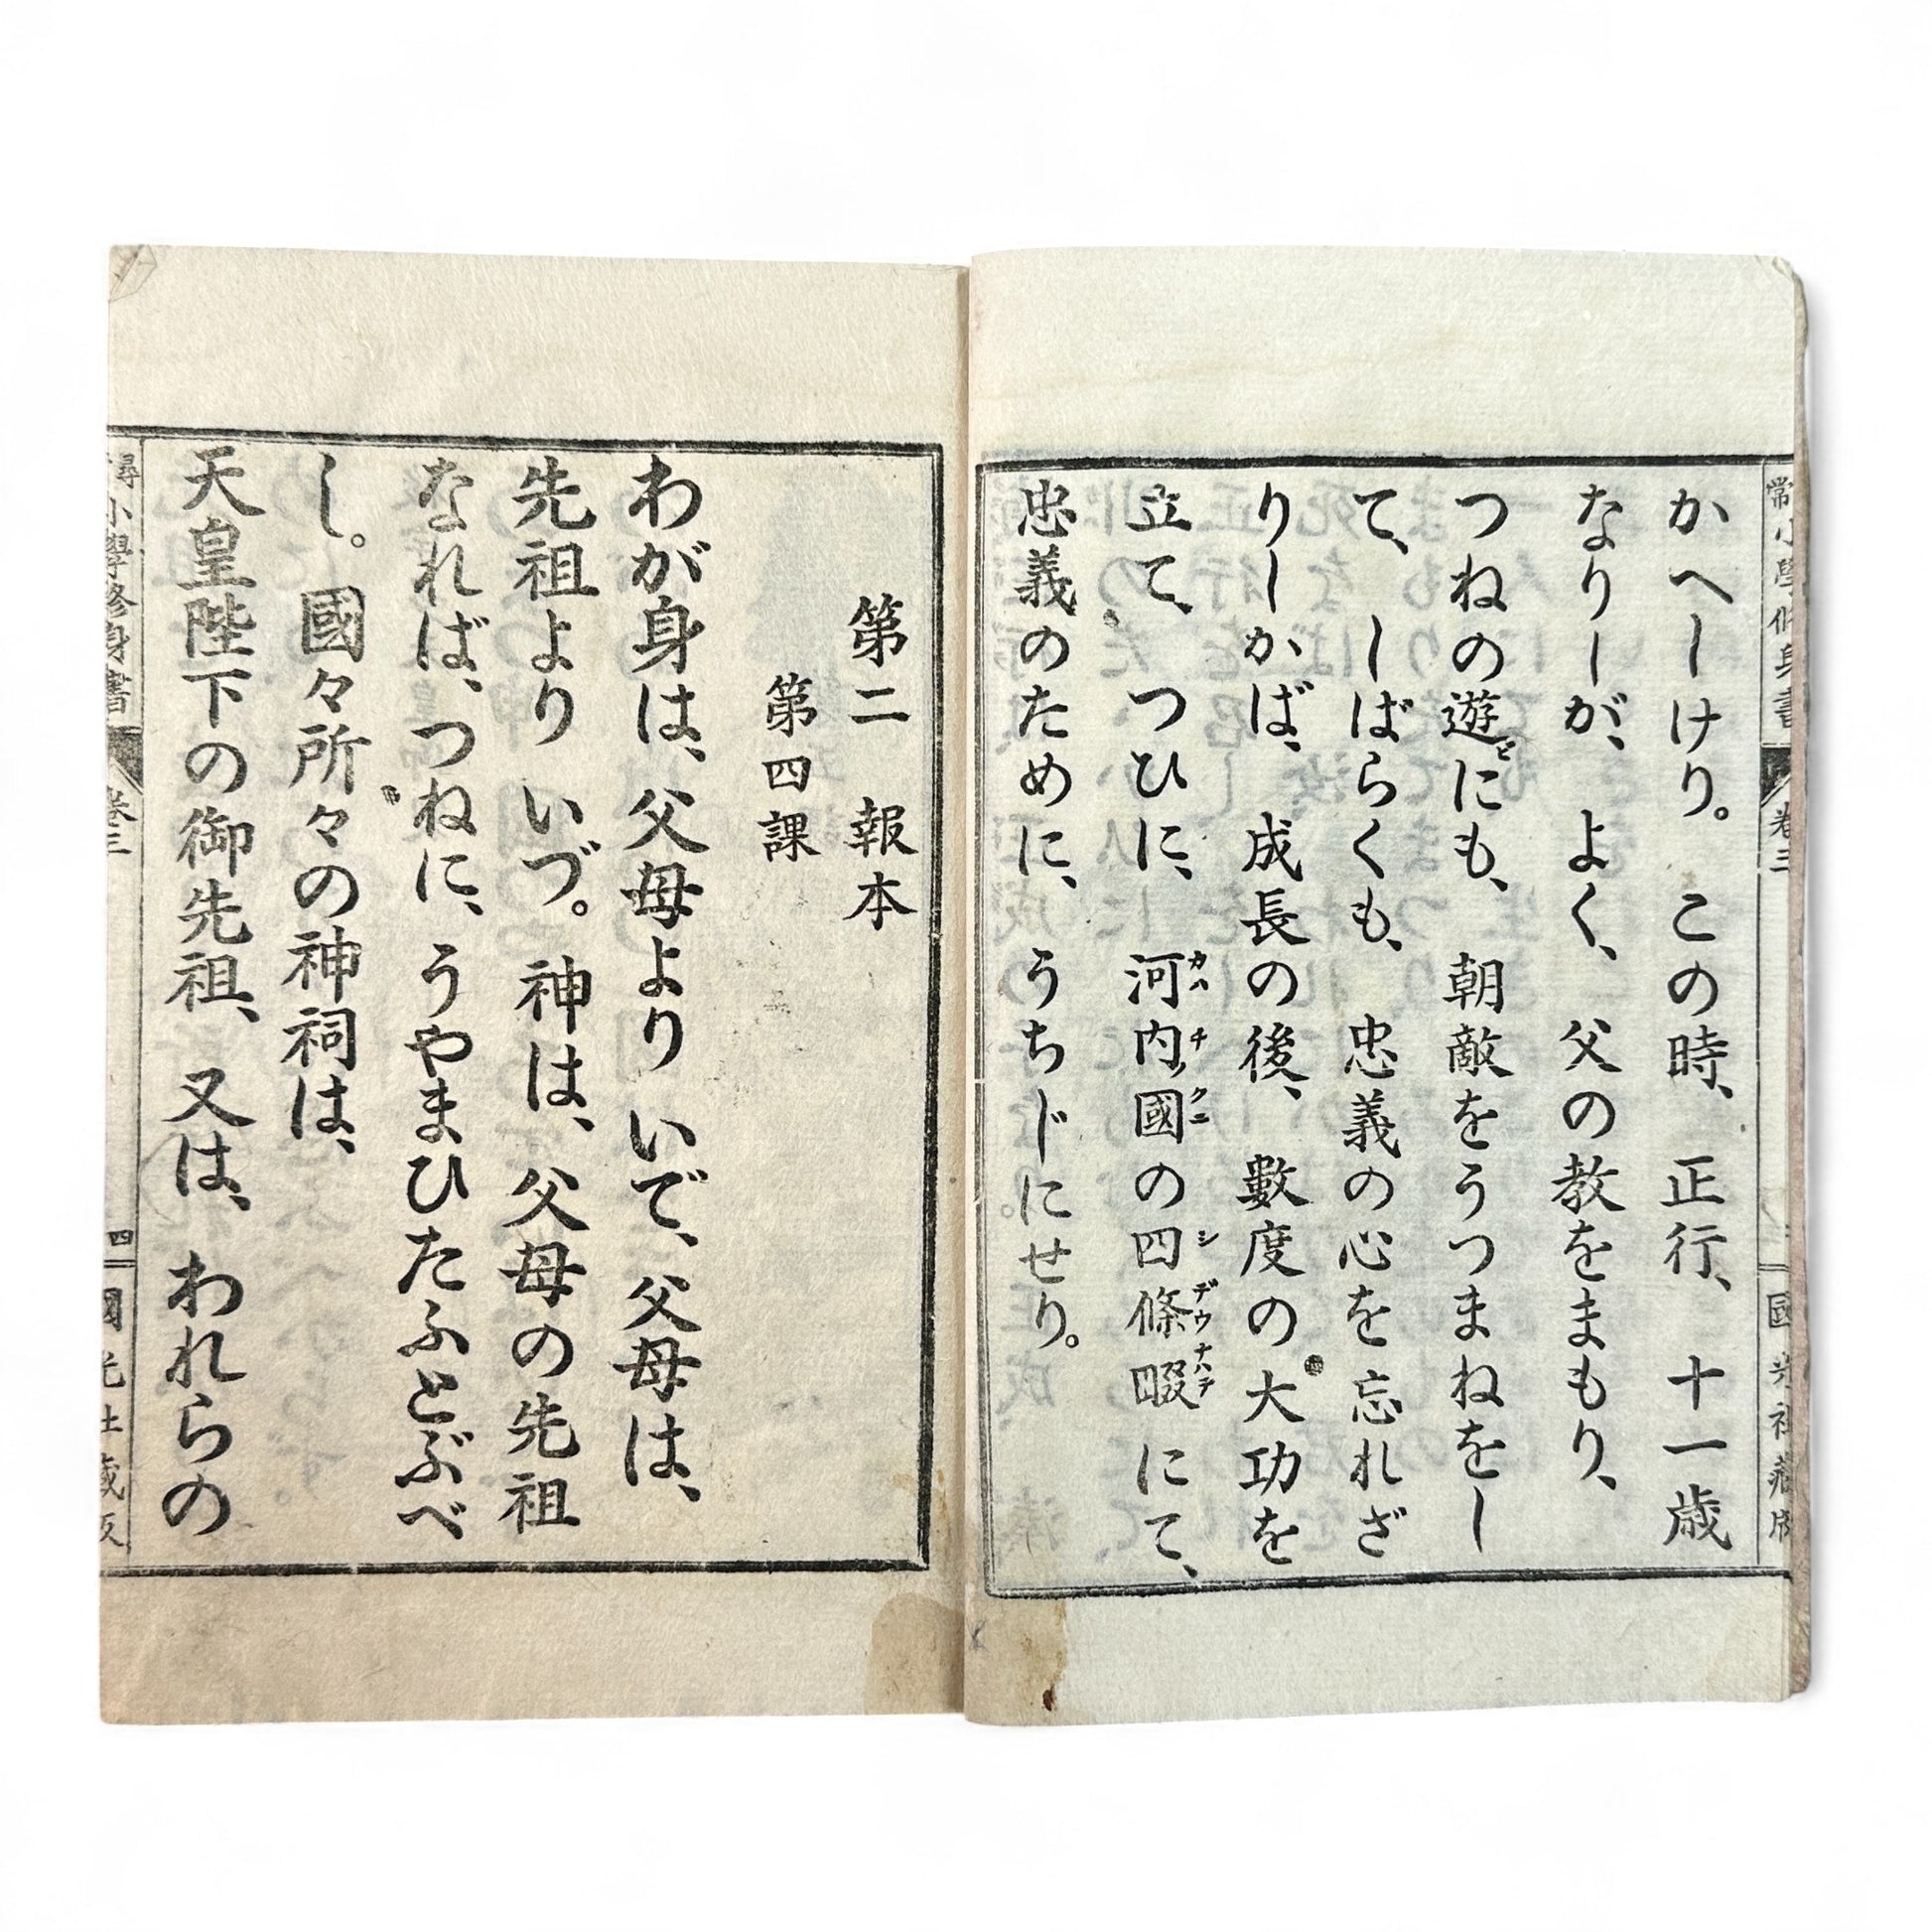 かへしけり。この時、正行、十一歳
なりしが、よく、父の教をまもり、
つねの遊にも、朝敵をうつまねをし
て、しばらくも、忠義の心を忘れざ
りしかば、成長の後、數度の大功を
立て、つひに、河内國の四條畷にて、
カハチノクニ シデウナハテ
忠義のために、うちじにせり。
常小學修身書 卷三 國光社藏版
第二 報本
第四課
わが身は、父母より いで、父母は、
先祖より いづ。神は、父母の先祖
なれば、つねに、うやまひたふとぶべ
し。國々所々の神祠は、
天皇陛下の御先祖、又は、われらの
尋 小學修身書 卷三 四 國光社藏版